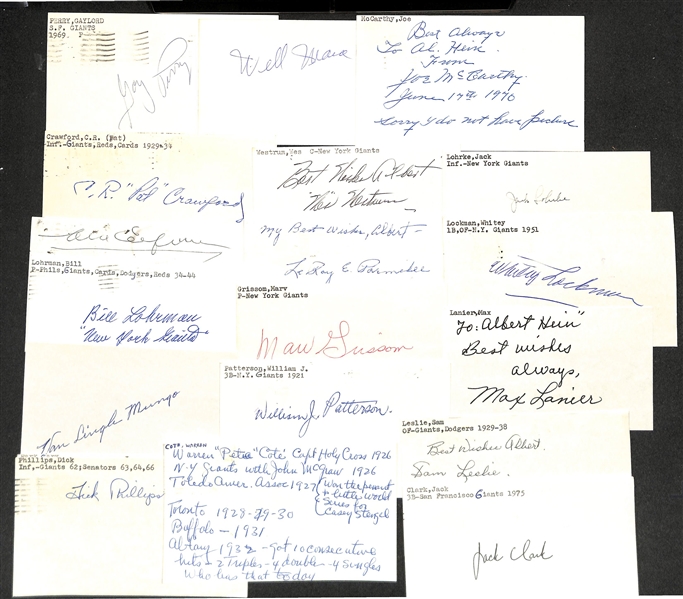 PERRY, GAYLORD
S.F. GIANTS
1969 P-
Gay Perry
Well Mara
McCarthy, Joe
Best Always
To Al. Hein.
From
Joe McCarthy
June 17th 1970
Sorry I do not have picture
Crawford, C.R. (Pat)
Inf.-Giants, Reds, Cards 1929-34
C.R. "Pat" Crawford
Westrum, Wes C-New York Giants
Best Wishes Albert
Wes Westrum
My Best Wishes, Albert-
LeRoy E. Parmelee
Lohrke, Jack
Inf.-New York Giants
Jack Lohrke
Lockman, Whitey
1B,OF-N.Y. Giants 1951
Whitey Lockman
Lohrman, Bill
P-Phils, Giants, Cards, Dodgers, Reds 34-44
Bill Lohrman
"New York Giants"
Grissom, Marv
P-New York Giants
Marv Grissom
Lanier, Max
To: Albert Hein"
Best wishes
always,
Max Lanier
Van Lingle Mungo
Patterson, William J.
3B-N.Y. Giants 1921
William J. Patterson.
Leslie, Sam
OF-Giants, Dodgers 1929-38
Best Wishes Albert.
Sam Leslie.
Phillips, Dick
Inf.-Giants 62; Senators 63,64,66
Dick Phillips
COTE, WARREN
Warren "Pete" Cote' Capt Holy Cross 1926
N-Y Giants with John McGraw 1926
Toledo Amer. Assoc 1927 (Won the pennant
+ little World
Series for
Casey Stengel
Toronto 1928-29-30
Buffalo - 1931
Albany 1932 - got 10 consecutive
hits - 2 Triples - 4 doubles - 4 singles
Who has that today
Clark, Jack
3B-San Francisco Giants 1975
Jack Clark